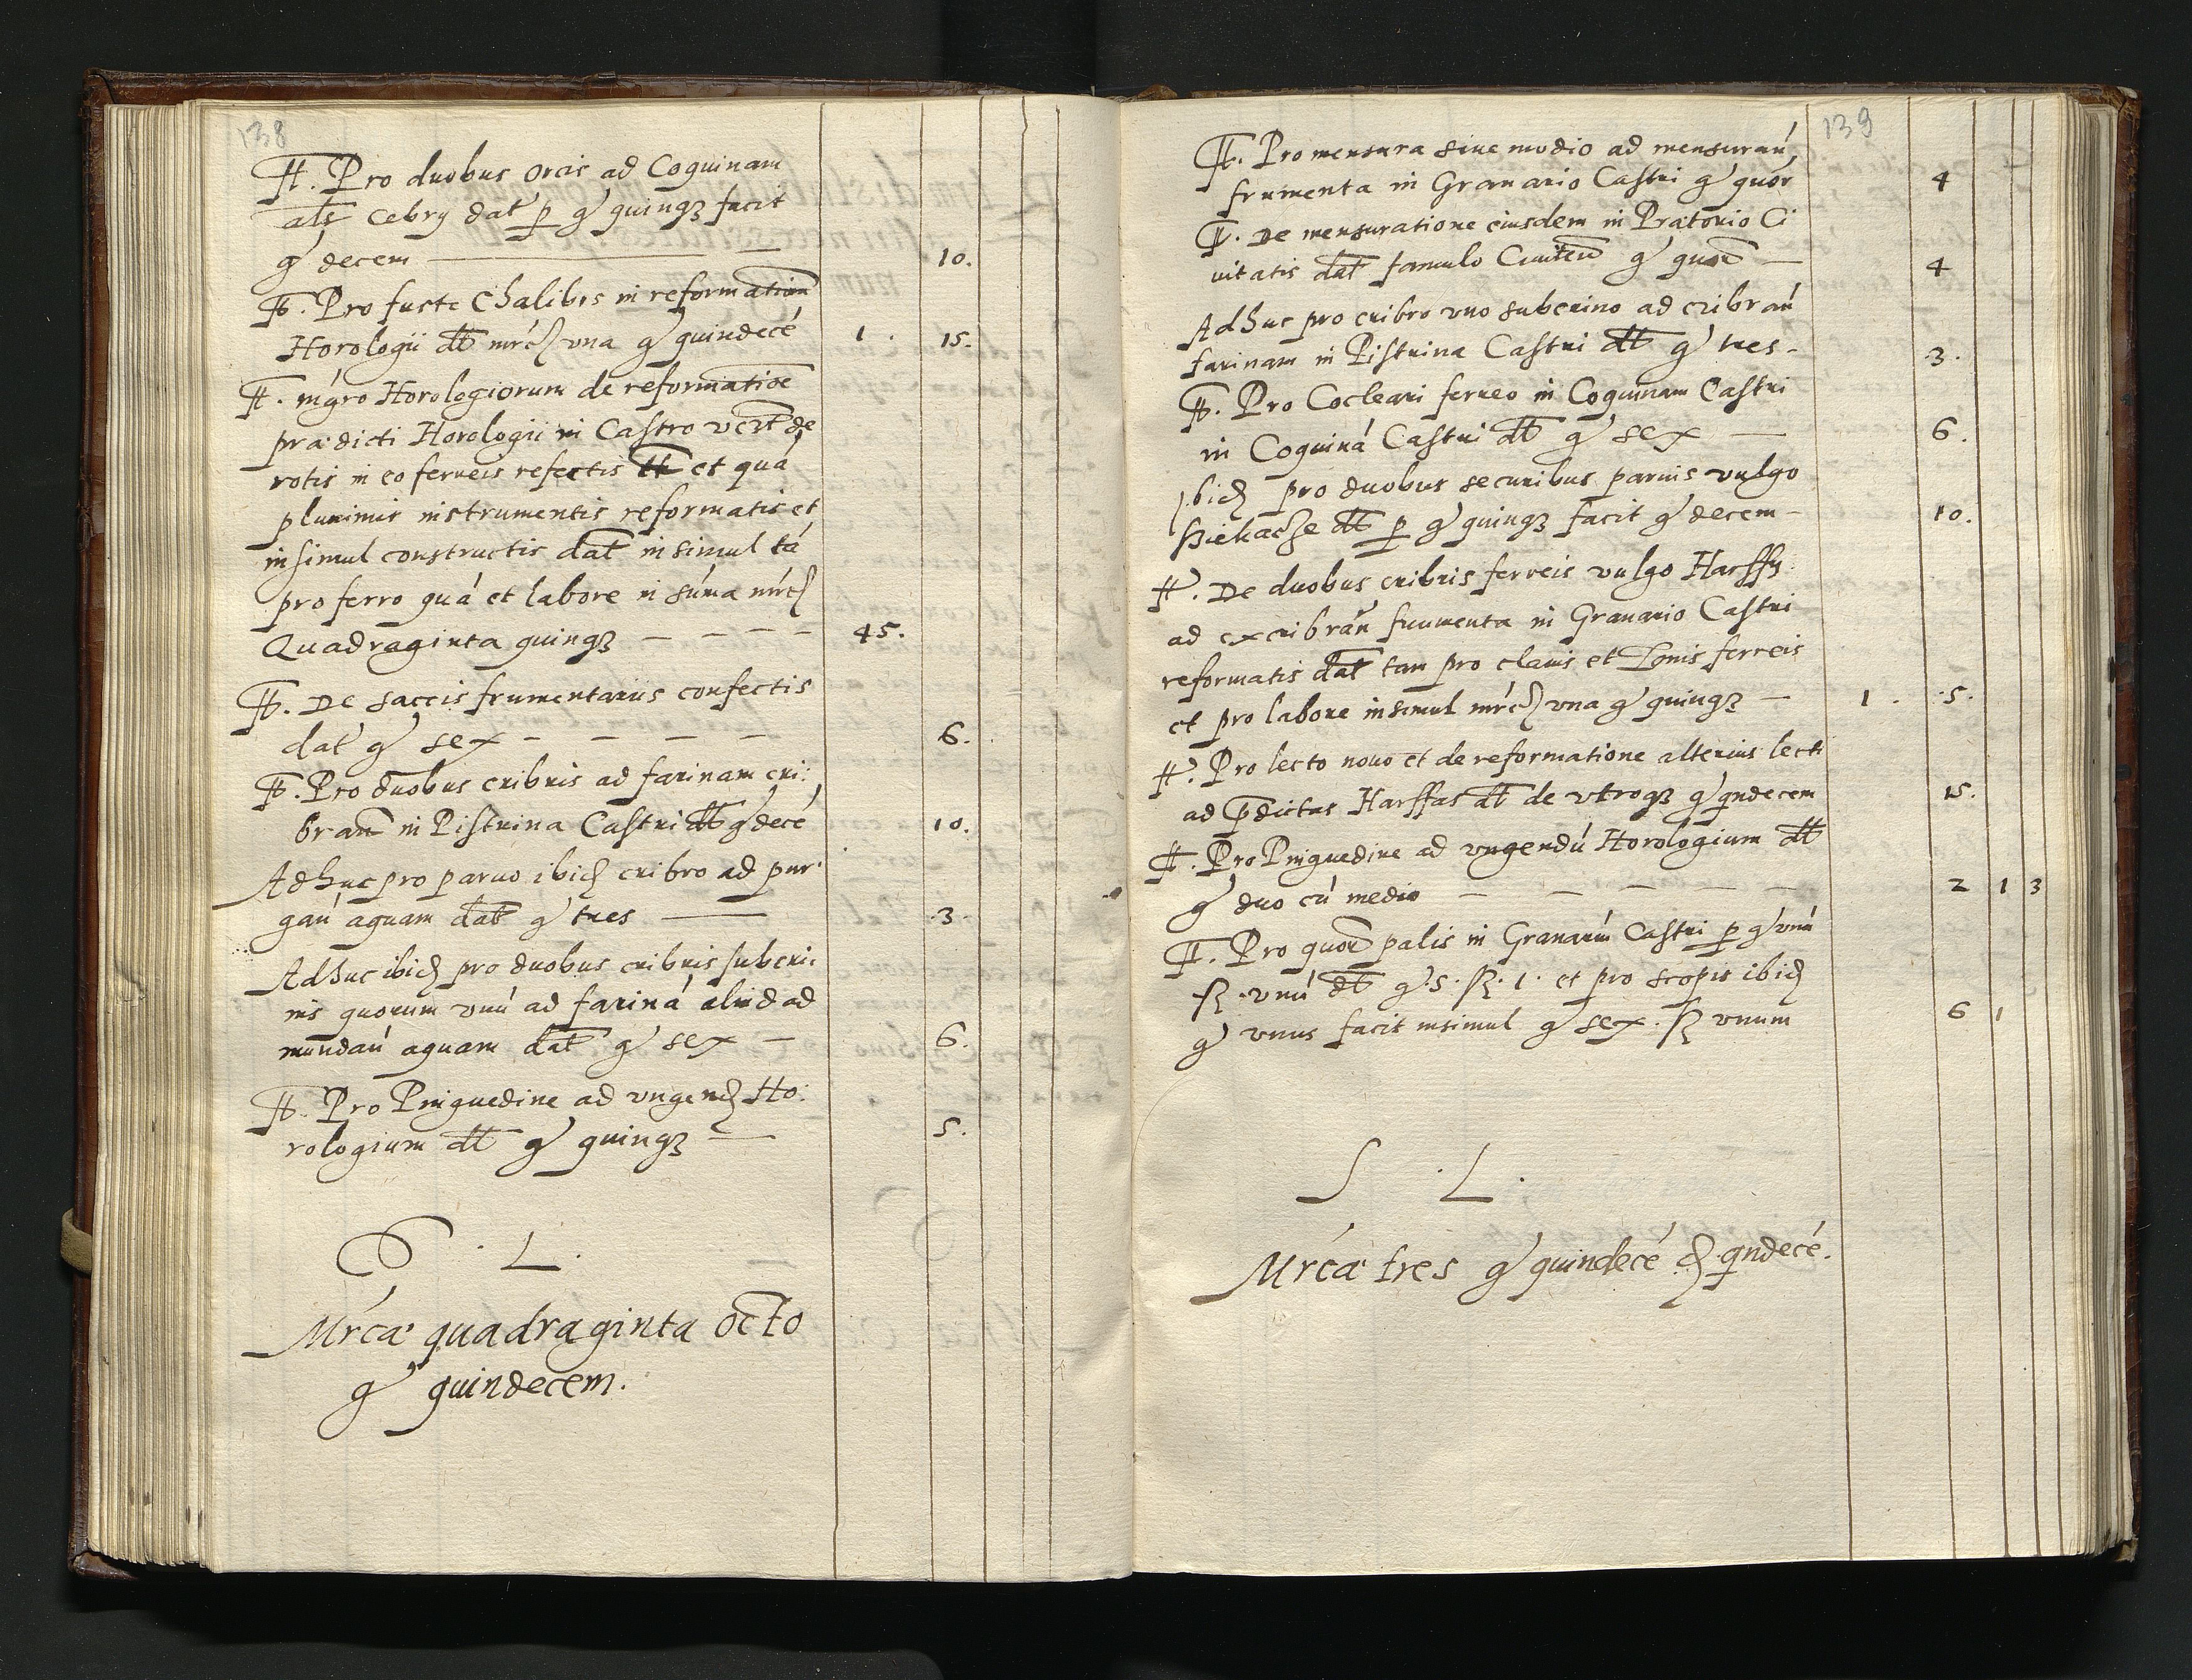 138
It. Pro duobus orcis ad Coquinam
als Cebry dat p gr quinqȝ facit
gr decem — 10.
It. Pro fuste Chalibis in reformationē
Horologii dt mrc una gr quindecē 1. 15.
It. mgro Horologiorum de reformatiōe
prædicti Horologii in Castro de
rotis in eo ferreis refectis et quā
plurimis instrumentis reformatis et
insimul constructis dat insimul tā
pro ferro quā et labore in sūma mrc
Quadraginta quinqȝ — — — — 45.
It. De saccis frumentariis confectis
dat gr sex — — — — 6.
It. Pro duobus cribris ad farinam cri:
bran in Pistrina Castri dt gr decē 10.
Adhuc pro paruo ibid cribro ad pur:
gan aquam dat gr tres — 3.
Adhuc ibid pro duobus cribris suberi:
nis quorum unū ad farinā aliud ad
mundan aquam dat gr sex — 6.
It. Pro Pinguedine ad ungend Ho:
rologium dt gr quinqȝ — 5.
S . L .
Mrcæ quadraginta octo
gr quindecem.
139
It. Pro mensura siue modio ad mensuran
frumenta in Granario Castri gr quor 4
It. De mensuratione eiusdem in Prætorio Ci
uitatis dat famulo gr quor — 4
Adhuc pro cribro uno suberino ad cribran
farinam in Pistrina Castri dt gr tres - 3.
It. Pro Cocleari ferreo in Coquinam Castri
in Coquinā Castri dt gr sex — 6.
Ibid pro duobus securibus paruis vulgo
dt p gr quinqȝ facit gr decem - 10.
It. De duobus cribris ferreis vulgo Harffy
ad excribran frumenta in Granario Castri
reformatis dat tam pro clauis et ferreis
et pro labore insimul mrc una gr quinqȝ — 1. 5.
It. Pro lecto nouo et de reformatione alterius lecti
ad prædictas Harffas dt de utroqȝ gr qndecem 15.
It. Pro Pinguedine ad ungendū Horologium dt
gr duo cū medio — — — — — 2 1 3
It. Pro quor palis in Granariū Castri p gr unū
ß unū dt gr 5. ß. 1. et pro scopis ibid
gr unus facit insimul gr sex. ß unum 6 1
S . L .
Mrcæ tres gr quindecē d. qndecē.